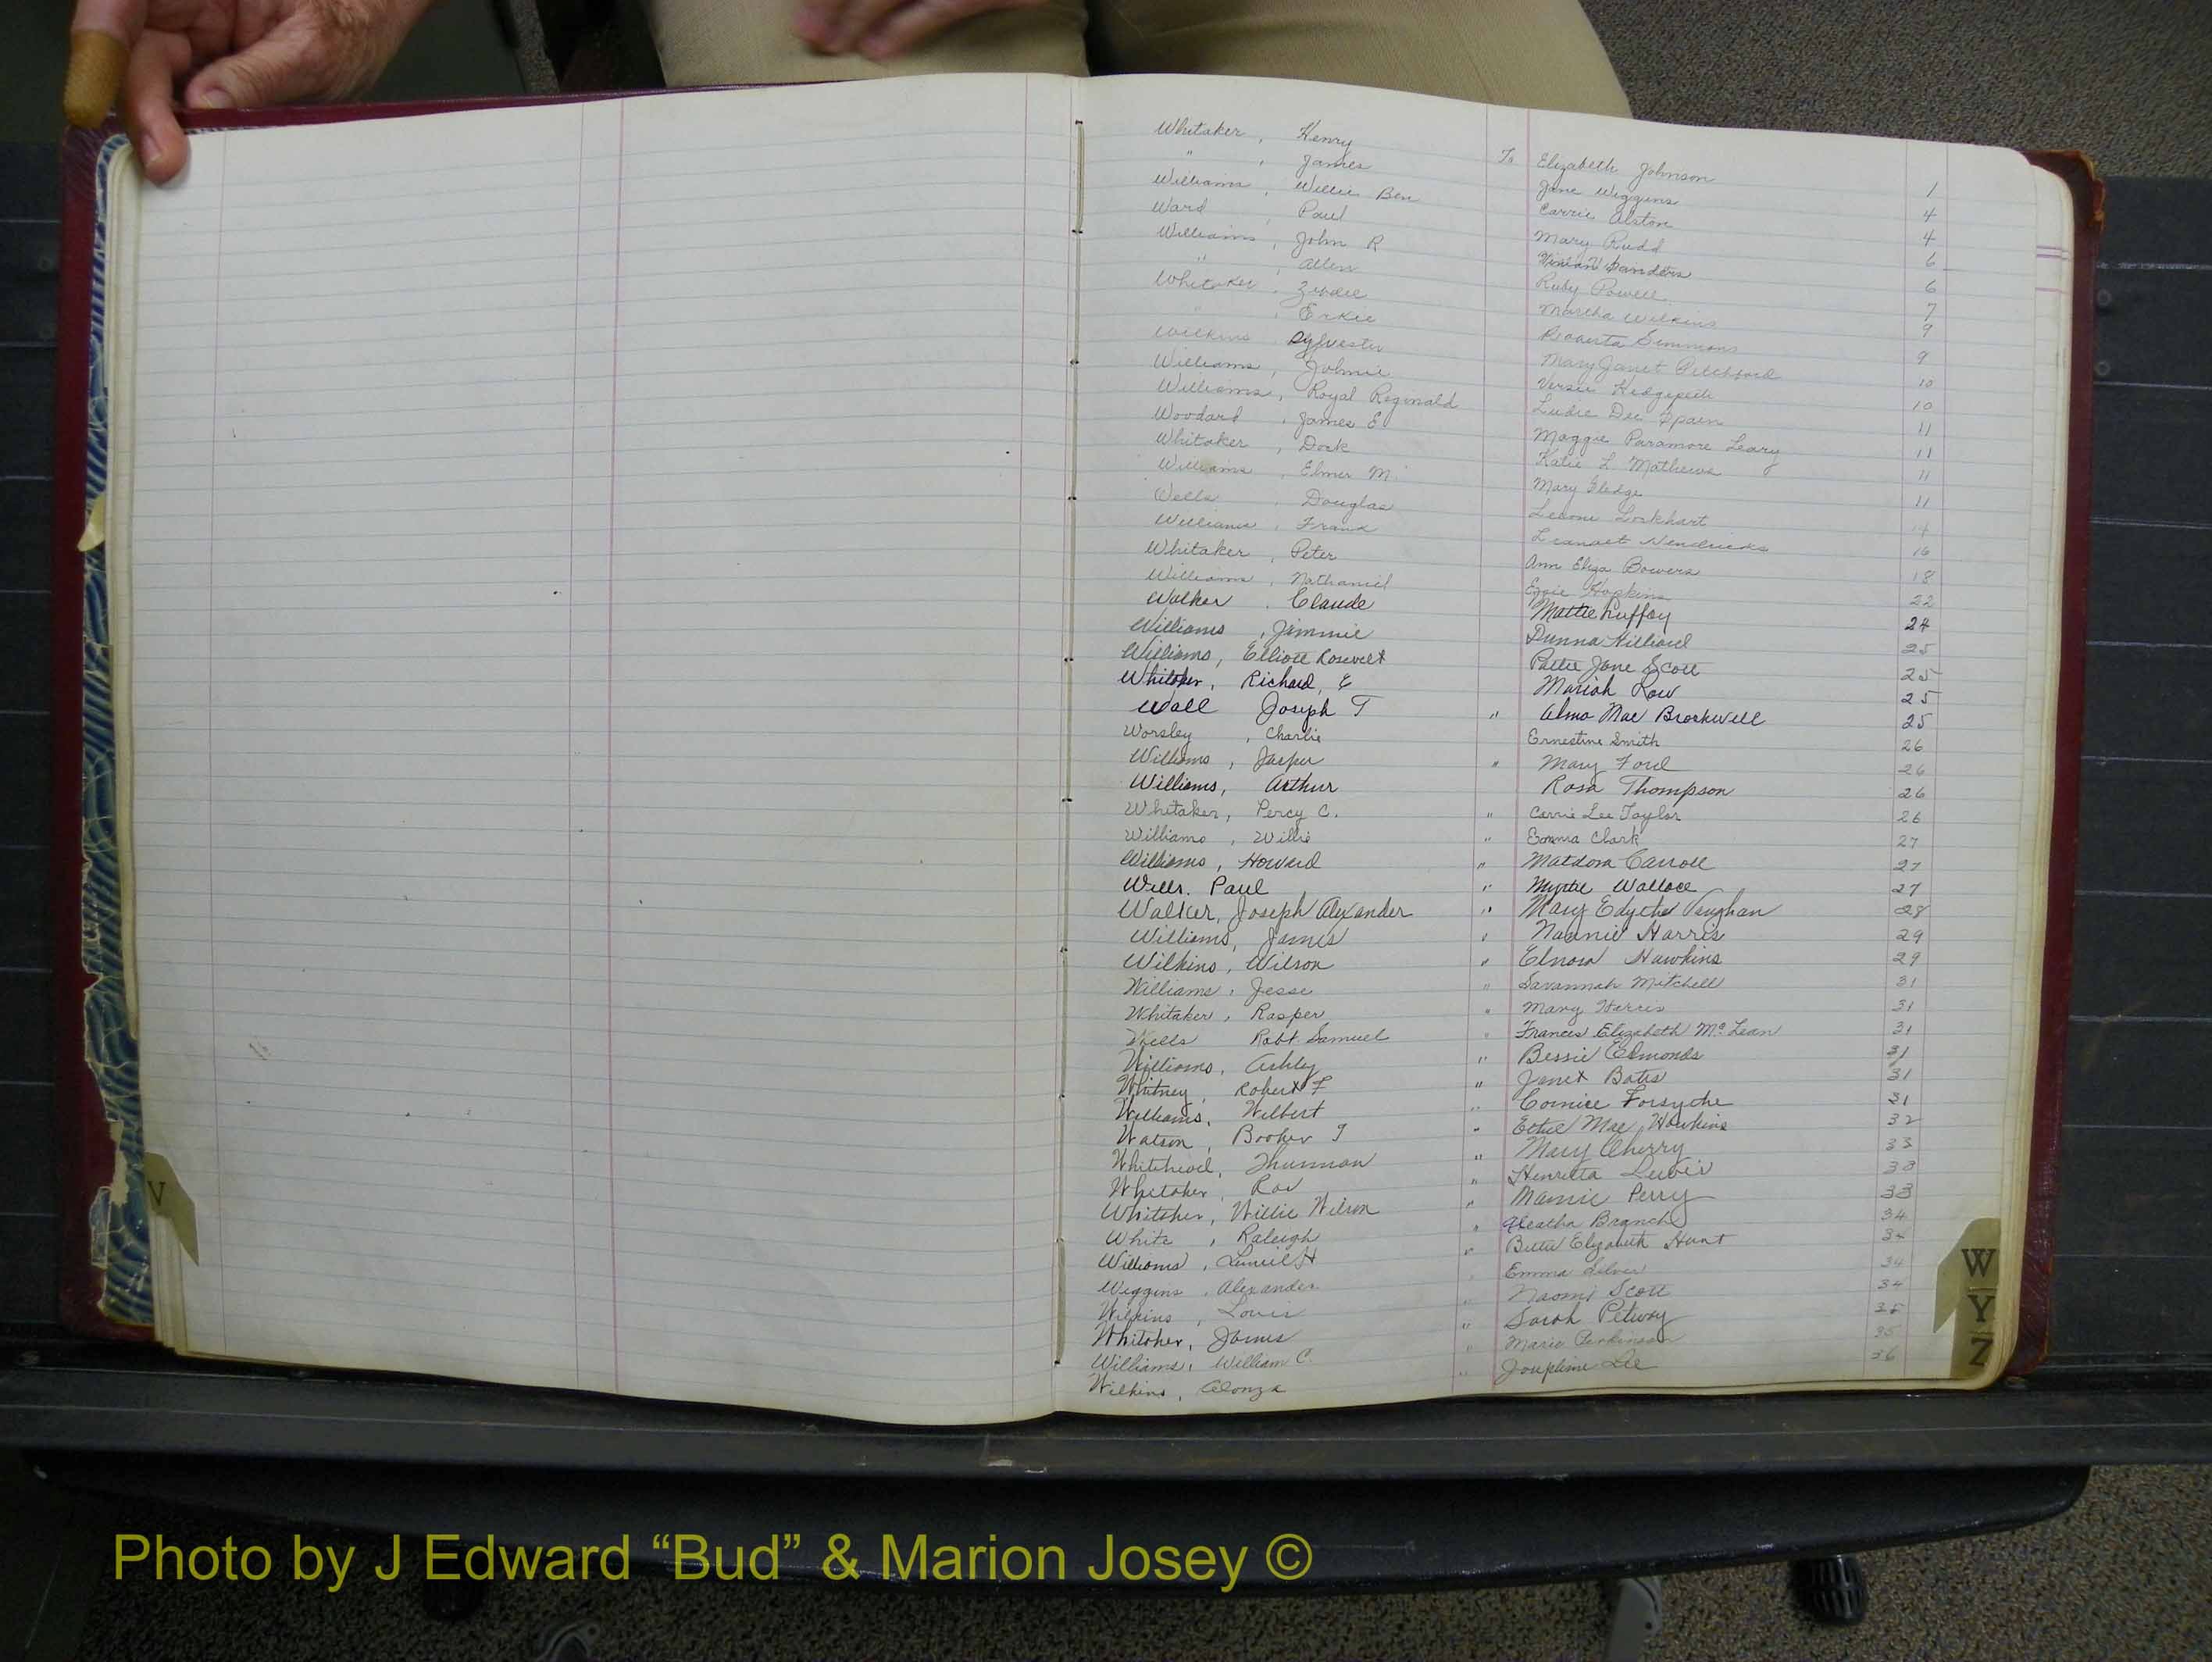 Whitaker, Henry To Elizabeth Johnson 1
" , James Jane Wiggins 4
Williams, Willie Ben Carrie Alston 4
Ward, Paul Mary Rudd 6
Williams, John R Sanders 6
" , Allen Ruby Powell 7
Whitaker, Martha Wilkins 9
" , Simmons 9
Wilkins, Sylvester Mary Janet Pitchford 10
Williams, Johnie Hedgepeth 10
Williams, Royal Reginald Ludie Dee Spain 11
Woodard, James E Maggie Paramore Leary 11
Whitaker, Dock Katie L. Mathews 11
Williams, Elmer M. Mary 11
Wells, Douglas Lockhart 14
Williams, Frank Hendricks 16
Whitaker, Peter Ann Eliza Bowers 18
Williams, Nathaniel Hopkins 22
Walker, Claude Mattie 24
Williams, Jimmie Hilliard 25
Williams, Elliott Rosevelt Pattie Jane Scott 25
Whitaker, Richard, E Mariah Low 25
Wall Joseph T " Alma Mae Brockwell 25
Worsley, Charlie Ernestine Smith 26
Williams, Jasper " Mary Ford 26
Williams, Arthur Rosa Thompson 26
Whitaker, Percy C. " Carrie Lee Taylor 26
Williams, Willie " Emma Clark 27
Williams, Howard " Matdora Carroll 27
Wells. Paul " Myrtle Wallace 27
Walker, Joseph Alexander " Mary Edythe Vaughan 28
Williams, James " Nannie Harris 29
Wilkins, Wilson " Elnora Hawkins 29
Williams, Jesse " Savannah Mitchell 31
Whitaker, Rasper " Mary Harris 31
Wells Robt. Samuel " Frances Elizabeth McLean 31
Williams, Ashley " Bessie Edmonds 31
Whitney, Robert F " Janet Bates 31
Williams, Wilbert " Cornice Forsythe 31
Watson, Booker T " Ethel Mae Hawkins 32
Whitehead, Thurman " Mary Cherry 33
Whitaker, " Henrietta Lewis 33
Whitaker, Willie Wilson " Mamie Perry 33
White, Raleigh " Aleatha Branch 34
Williams, Lemiel H " Elizabeth Hunt 34
Wiggins, Alexander Emma Silver 34
Wilkins, Louis " Naomi Scott 34
Whitaker, James " Sarah Petway 35
Williams, William C. " Marie Parkinson 35
Wilkins, Alonza " Josephine Lee 36
V
W
Y
Z
Photo by J Edward “Bud” & Marion Josey ©